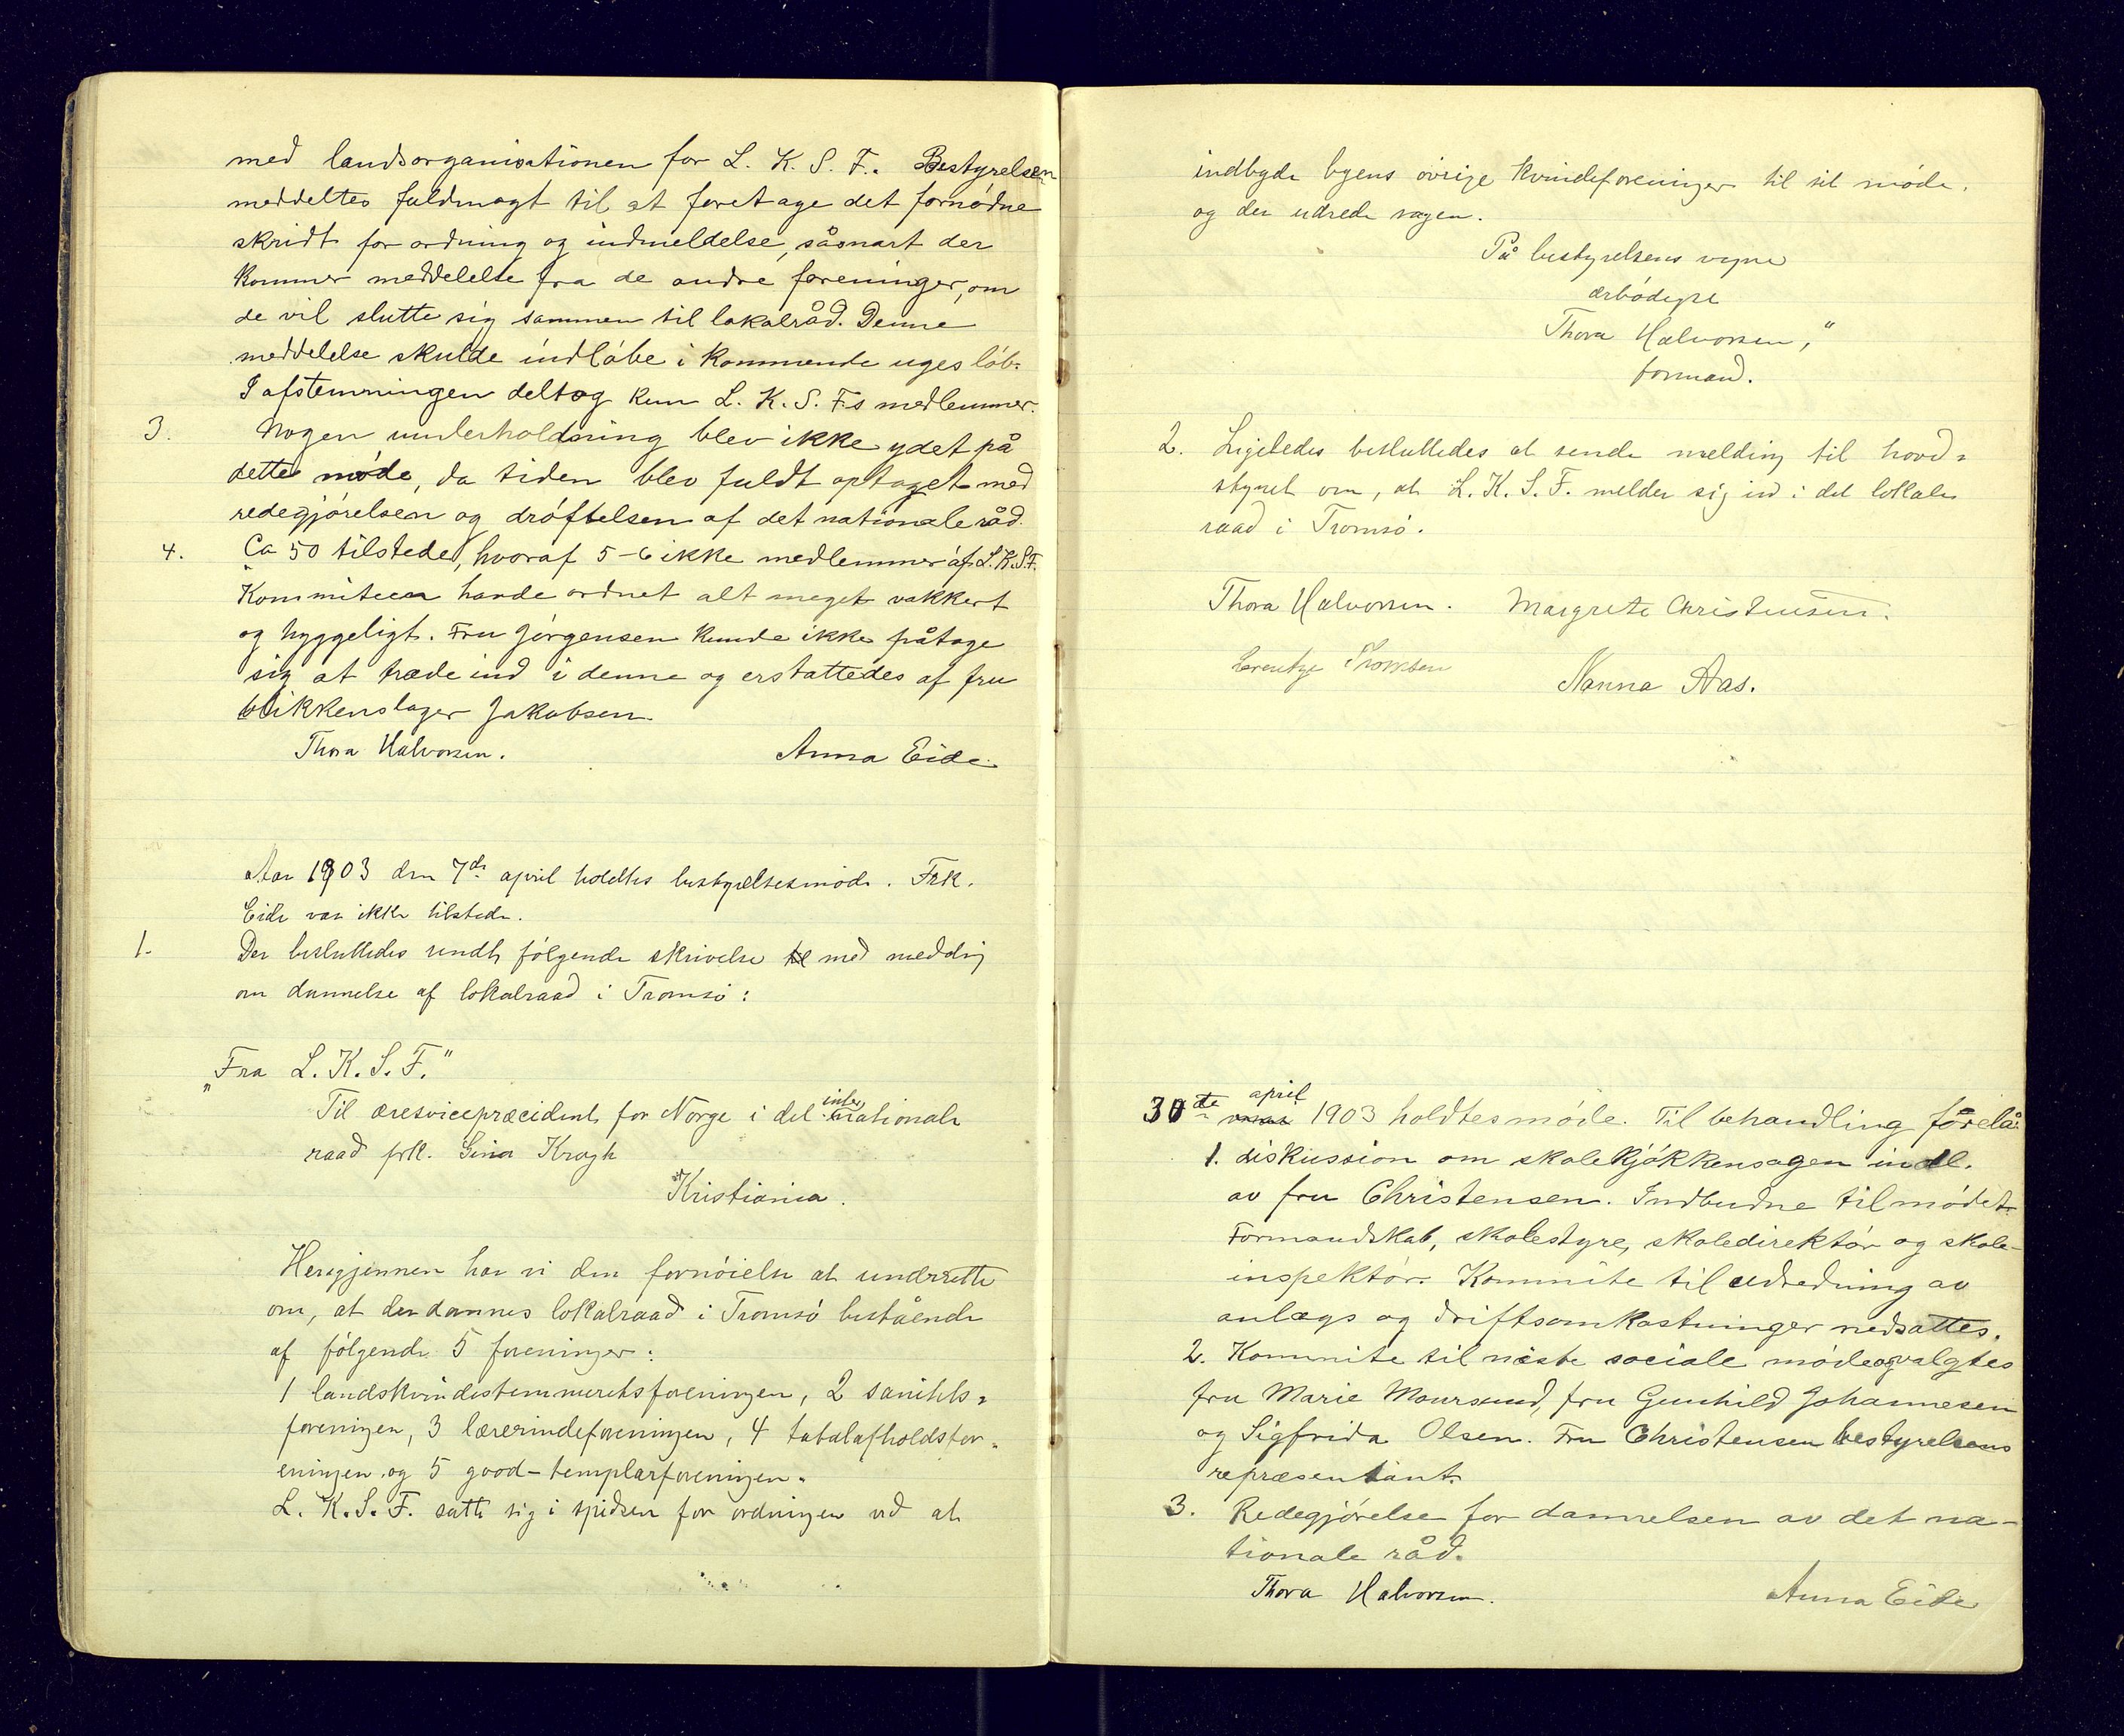 med landsorganisationen for L. K. S. F. Bestyrelsen
meddeltes fuldmagt til at foretage det fornødne
skridt for ordning og indmeldelse, såsnart der
kommer meddelelse fra de andre foreninger, om
de vil slutte sig sammen til lokalråd. Denne
meddelelse skulde indløbe i kommende uges løb.
I afstemningen deltog kun L. K. S. Fs medlemmer.
3. Nogen underholdning blev ikke ydet på
dette møde, da tiden blev fuldt optaget med
redegjørelsen og drøftelsen af det nationale råd.
4. Ca 50 tilstede, hvoraf 5-6 ikke medlemmer af L.K.S.F.
Kommiteen havde ordnet alt meget vakkert
og hyggeligt. Fru Jørgensen kunde ikke påtage
sig at træde ind i denne og erstattedes af fru
blikkenslager Jakobsen.
Thora Halvorsen. Anna Eide
Aar 1903 den 7de april holdtes bestyrelsesmøde. Frk.
Eide var ikke tilstede.
1. Der besluttedes sendt følgende skrivelse til med meddlig
om dannelse af lokalraad i Tromsø:
„Fra L. K. S. F."
Til æresvicepræcident for Norge i det internationale
raad frk. Gina Krogh
Kristiania.
Herigjennem har vi den fornøielse at underrette
om, at der dannes lokalraad i Tromsø bestående
af følgende 5 foreninger:
1 landskvindestemmeretsforeningen, 2 sanitets=
foreningen, 3 lærerindeforeningen, 4 totalafholdsfor=
eningen og 5 good-templarforeningen.
L. K. S. F. satte sig i spidsen for ordningen ved at
indbyde byens øvrige kvindeforeninger til sit møde,
og der udrede sagen.
På bestyrelsens vegne
ærbødigst
Thora Halvorsen,"
formand.
2. Ligeledes besluttedes at sende melding til hoved=
styret om, at L. K. S. F. melder sig ind i det lokale
raad i Tromsø.
Thora Halvorsen. Margrete Christensen.
Lorentze Thomsen Nanna Aas.
30te april 1903 holdtes møde. Til behandling forelå:
1. diskussion om skolekjøkkensagen indl.
av fru Christensen. Indbudne til mødet
Formandskab, skolestyre, skoledirektør og skole-
inspektør. Kommite til udredning av
anlægs og driftsomkostninger nedsattes.
2. Kommite til næste sociale møde og valgtes
fru Marie Moursund, fru Gunhild Johannesen
og Sigfrida Olsen. Fru Christensen bestyrelsens
repræsentant.
3. Redegjørelse for dannelsen av det na-
tionale råd.
Thora Halvorsen. Anna Eide